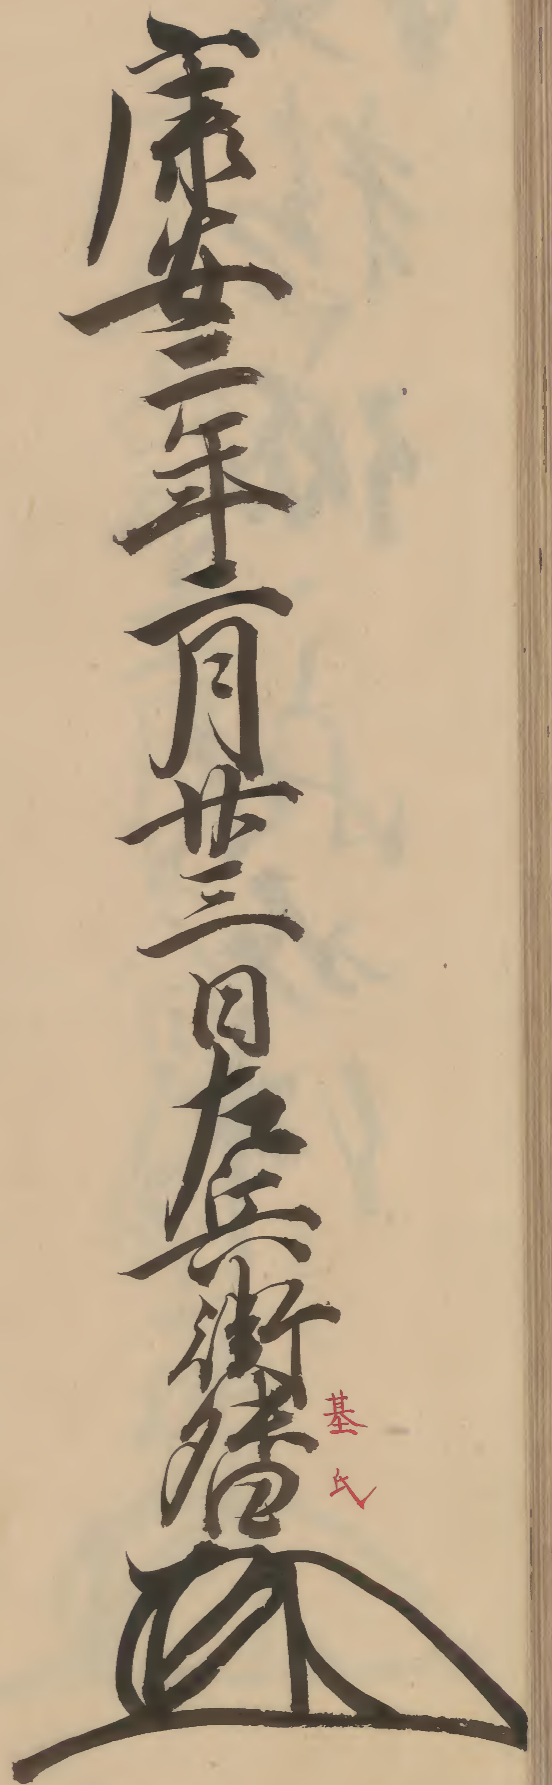 康安二年二月廿三日左兵衛督
基氏